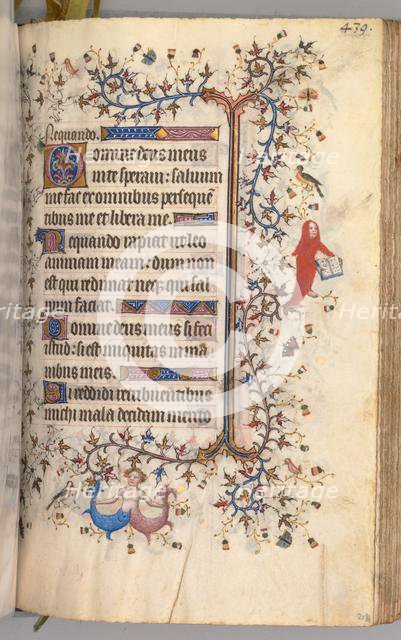 439.
Nequando.
Domine deus meus
in te speraui: saluum
me fac ex omnibus perseque͞
tibus me et libera me.
Nequando rapiat ut leo
animam meam: dum non
est qui redimat neq; qui sal
uum faciat.
Domine deus meus si feci
istud: si est iniquitas in ma
nibus meis.
Si reddidi retribuentibus
michi mala decidam merito